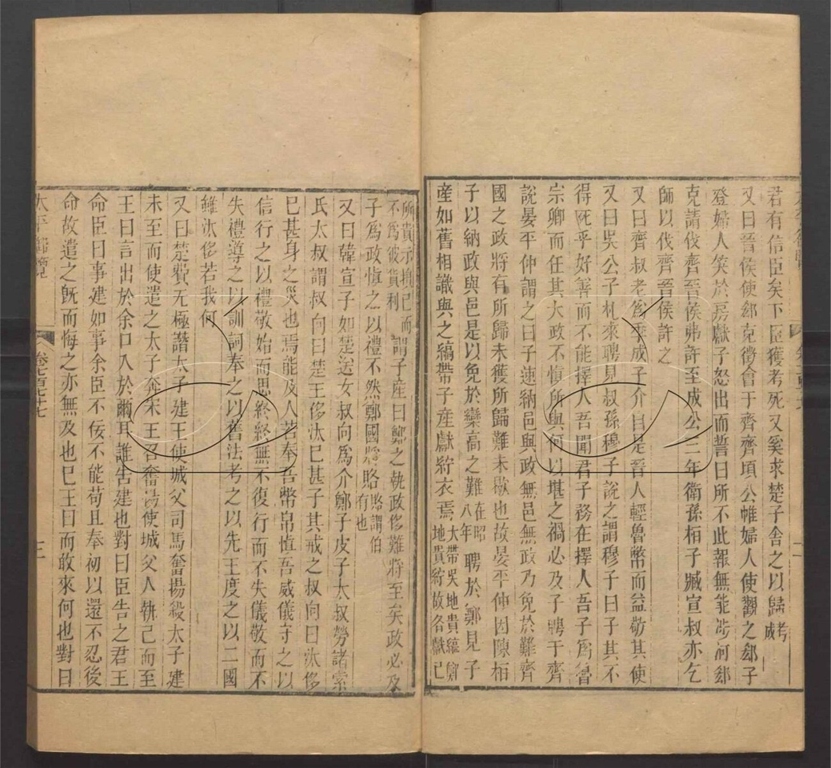 君有信臣矣下臣獲考死又奚求楚子舍之以歸考成
又曰晉侯使郤克徵會于齊齊頃公帷婦人使觀之郤子
登婦人笑於房獻子怒出而誓曰所不此報無能涉河郤
克請伐齊晉侯弗許至成公二年衛孫桓子臧宣叔亦乞
師以伐齊晉侯許之
又曰齊叔老為季武子介自是晉人輕魯幣而益敬其使
又曰吳公子札來聘見叔孫穆子說之謂穆子曰子其不
得死乎好善而不能擇人吾聞君子務在擇人吾子為魯
宗卿而任其大政不慎所與何以堪之禍必及子聘于齊
說晏平仲謂之曰子速納邑與政無邑無政乃免於難齊
國之政將有所歸未獲所歸難未歇也故晏平仲因陳桓
子以納政與邑是以免於欒高之難在昭八年聘於鄭見子
產如舊相識與之縞帶子產獻紵衣焉大帶吳地貴縞鄭地貴紵故各獻己
所貴示損己而不為彼貨利謂子產曰鄭之執政侈難將至矣政必及
子為政慎之以禮不然鄭國將敗敗謂伯有也
又曰韓宣子如楚送女叔向為介鄭子皮子太叔勞諸索
氏太叔謂叔向曰楚王侈汰已甚子其戒之叔向曰汰侈
已甚身之災也焉能及人若奉吾幣帛慎吾威儀守之以
信行之以禮敬始而思終終無不復行而不失儀敬而不
失禮導之以訓詞奉之以舊法考之以先王度之以二國
雖汰侈若我何
又曰楚費无極譖太子建王使城父司馬奮揚殺太子建
未至而使遣之太子奔宋王召奮揚使城父人執己而至
王曰言出於余口入於爾耳誰告建也對曰臣告之君王
命臣曰事建如事余臣不佞不能苟且奉初以還不忍後
命故遣之既而悔之亦無及也已王曰而敢來何也對曰
太平御覽 卷七百七十七 三